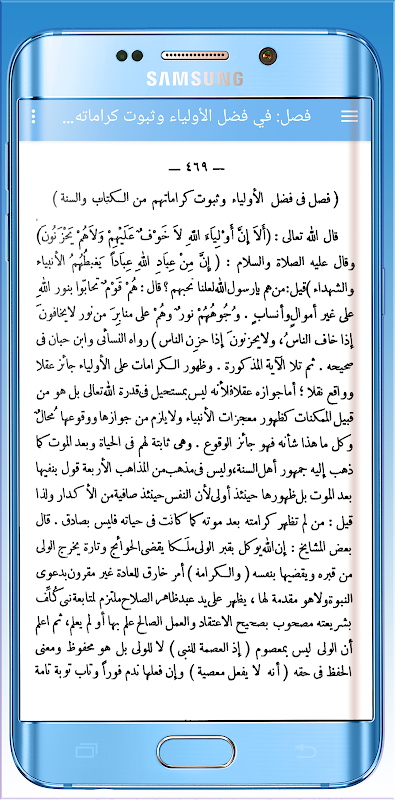 SAMSUNG
فصل: في فضل الأولياء وثبوت كراماته...
— ٤٦٩ —
( فصل فى فضل الأولياء وثبوت كراماتهم من الكتاب والسنة )
قال الله تعالى : ( أَلاَ إِنَّ أَوْلِيَاءَ اللّهِ لاَ خَوْفٌ عَلَيْهِمْ وَلاَهُمْ يَحْزَنُونَ )
وقال عليه الصلاة والسلام : ( إِنَّ مِنْ عِبَادِ اللهِ عِبَاداً يَغبِطُهُمُ الأنبياء
والشهداء ) قيل: من هم يارسول الله لعلنا نحبهم ؟ قال : هُمْ قَوْمٌ تحابّوا بنورِ اللهِ
على غير أموالٍ وأنسابٍ . وُجُوهُهُمْ نورٌ وهُمْ على منابِرَ من نور لايخافونَ
إذا خاف الناسُ ، ولايحزنونَ إذا حزن الناس ) رواه النسائى وابن حبان فى
صحيحه . ثم تلا الآية المذكورة . وظهور الكرامات على الأولياء جائز عقلا
وواقع نقلا ؛ أماجوازه عقلافلأنه ليس بمستحيل فى قدرة الله تعالى بل هو من
قبيل الممكنات كظهور معجزات الأنبياء ولا يلزم من جوازها ووقوعها محالٌ
وكل ما هذا شأنه فهو جائز الوقوع . وهى ثابتة لهم فى الحياة وبعد الموت كما
ذهب إليه جمهور أهل السنة،وليس فى مذهب من المذاهب الأربعة قول بنفيها
بعد الموت بل ظهورها حينئذ أولى لأن النفس حينئذ صافية من الأكدار ولذا
قيل : من لم تظهر كرامته بعد موته كما كانت فى حياته فليس بصادق . قال
بعض المشايخ : إن الله يوكل بقبر الولى ملكا يقضى الحوائج وتارة يخرج الولى
من قبره ويقضيها بنفسه ( والكرامة ) أمر خارق للعادة غير مقرون بدعوى
النبوة ولاهو مقدمة لها ، يظهر على يد عبد ظاهر الصلاح ملتزم لمتابعة نبى كُلِّف
بشريعته مصحوب بصحيح الاعتقاد والعمل الصالح علم بها أو لم يعلم، ثم اعلم
أن الولى ليس بمعصوم ( إذ العصمة للنبى ) لا للولى بل هو محفوظ ومعنى
الحفظ فى حقه ( أنه لا يفعل معصية ) وإن فعلها ندم فوراً وتاب توبة تامة